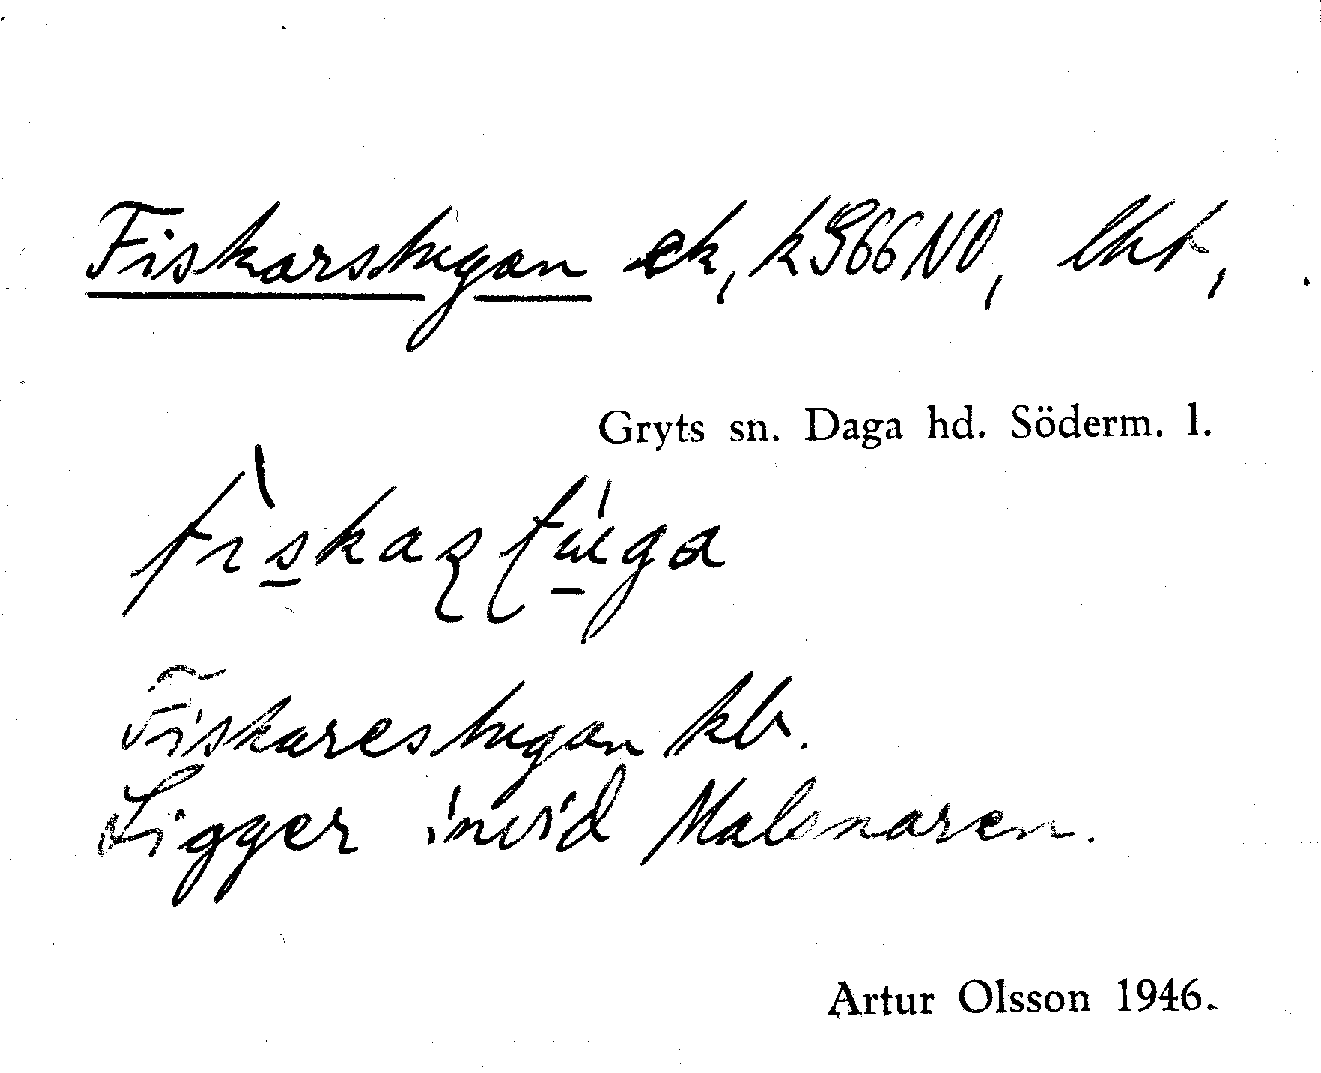 Fiskarstugan ek, k966N0, lht,
Gryts sn. Daga hd. Söderm. l.
Fiskarestugan kb.
Ligger invid Malsnaren.
Artur Olsson 1946.